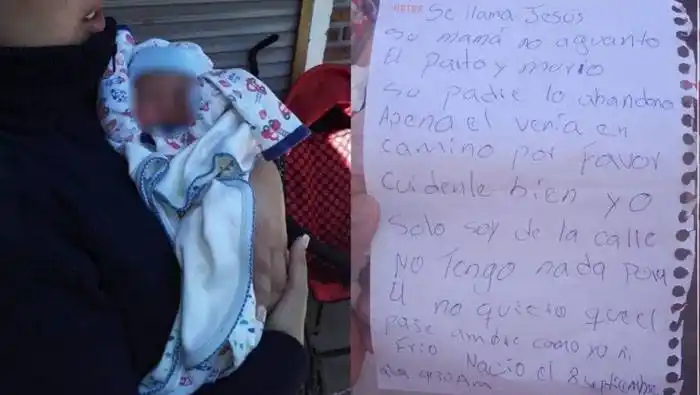 Se llama Jesús
su mamá no aguanto
El parto y murio
su padre lo abandono
Apena el venia en
camino por favor
Cuidenle bien yo
Solo soy de la calle
No Tengo nada para
El no quiero que el
pase ambre como yo ni
Frio Nacio el 8 septiembre
9:30 Am